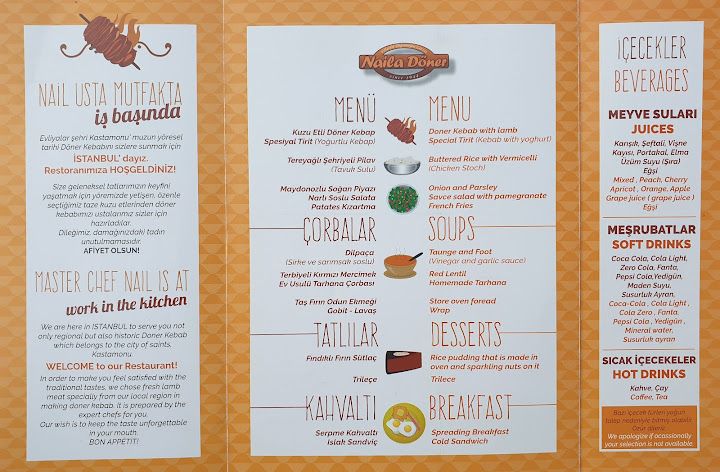 NAIL USTA MUTFAKTA
iş başında
Evliyalar şehri Kastamonu' muzun yöresel
tarihi Döner Kebabını sizlere sunmak için
İSTANBUL' dayız.
Restoranımıza HOŞGELDİNİZ!
Size geleneksel tatlarımızın keyfini
yaşatmak için yöremizde yetişen, özenle
seçtiğimiz taze kuzu etlerinden döner
kebabımızı ustalarımız sizler için
hazırladılar.
Dileğimiz, damağınızdaki tadın
unutulmamasıdır.
AFİYET OLSUN!
MASTER CHEF NAIL IS AT
work in the kitchen
We are here in ISTANBUL to serve you not
only regional but also historic Doner Kebab
which belongs to the city of saints,
Kastamonu.
WELCOME to our Restaurant!
In order to make you feel satisfied with the
traditional tastes, we chose fresh lamb
meat specially from our local region in
making doner kebab. It is prepared by the
expert chefs for you.
Our wish is to keep the taste unforgettable
in your mouth.
BON APPETIT!
Naila Döner
SINCE 1944
MENÜ MENU
Kuzu Etli Döner Kebap Doner Kebab with lamb
Spesiyal Tirit (Yogurtlu Kebap) Special Tirit (Kebab with yoghurt)
Tereyağlı Şehriyeli Pilav Buttered Rice with Vermicelli
(Tavuk Sulu) (Chicken Stoch)
Maydonozlu Soğan Piyazı Onion and Parsley
Narlı Soslu Salata Savce salad with pamegranate
Patates Kızartma French Fries
ÇORBALAR SOUPS
Dilpaça Taunge and Foot
(Sirke ve sarımsak soslu) (Vinegar and garlic sauce)
Terbiyeli Kırmızı Mercimek Red Lentil
Ev Usulü Tarhana Çorbası Homemade Tarhana
Taş Fırın Odun Ekmeği Store oven foread
Gobit - Lavaş Wrap
TATLILAR DESSERTS
Fındıklı Fırın Sütlaç Rice pudding that is made in
oven and sparkling nuts on it
Trileçe Trilece
KAHVALTI BREAKFAST
Serpme Kahvaltı Spreading Breakfast
Islak Sandviç Cold Sandwich
İÇECEKLER
BEVERAGES
MEYVE SULARI
JUICES
Karışık, Şeftali, Vişne
Kayısı, Portakal, Elma
Üzüm Suyu (Şıra)
Eğşi
Mixed , Peach, Cherry
Apricot , Orange, Apple
Grape juice ( grape juice )
Eğşi
MEŞRUBATLAR
SOFT DRINKS
Coca Cola, Cola Light,
Zero Cola, Fanta,
Pepsi Cola,Yedigün,
Maden Suyu,
Susurluk Ayran
Coca-Cola , Cola Light ,
Cola Zero , Fanta,
Pepsi Cola , Yedigün ,
Mineral water,
Susurluk ayran
SICAK İÇECEKELER
HOT DRINKS
Kahve, Çay
Coffee, Tea
Bazı içecek türleri yoğun
talep nedeniyle bitmiş olabilir
Özür dileriz.
We apologize if ocassionally
your selection is not available.